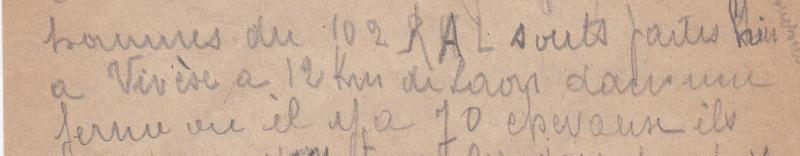 hommes du 102 RAL sonts partes hier
a Vivèse a 12 Km de Laon dans une
ferme ou il y a 70 chevause ils